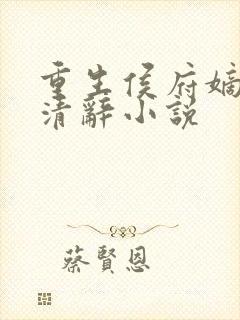 重生侯府嫡
清辭小說
蔡賢恩